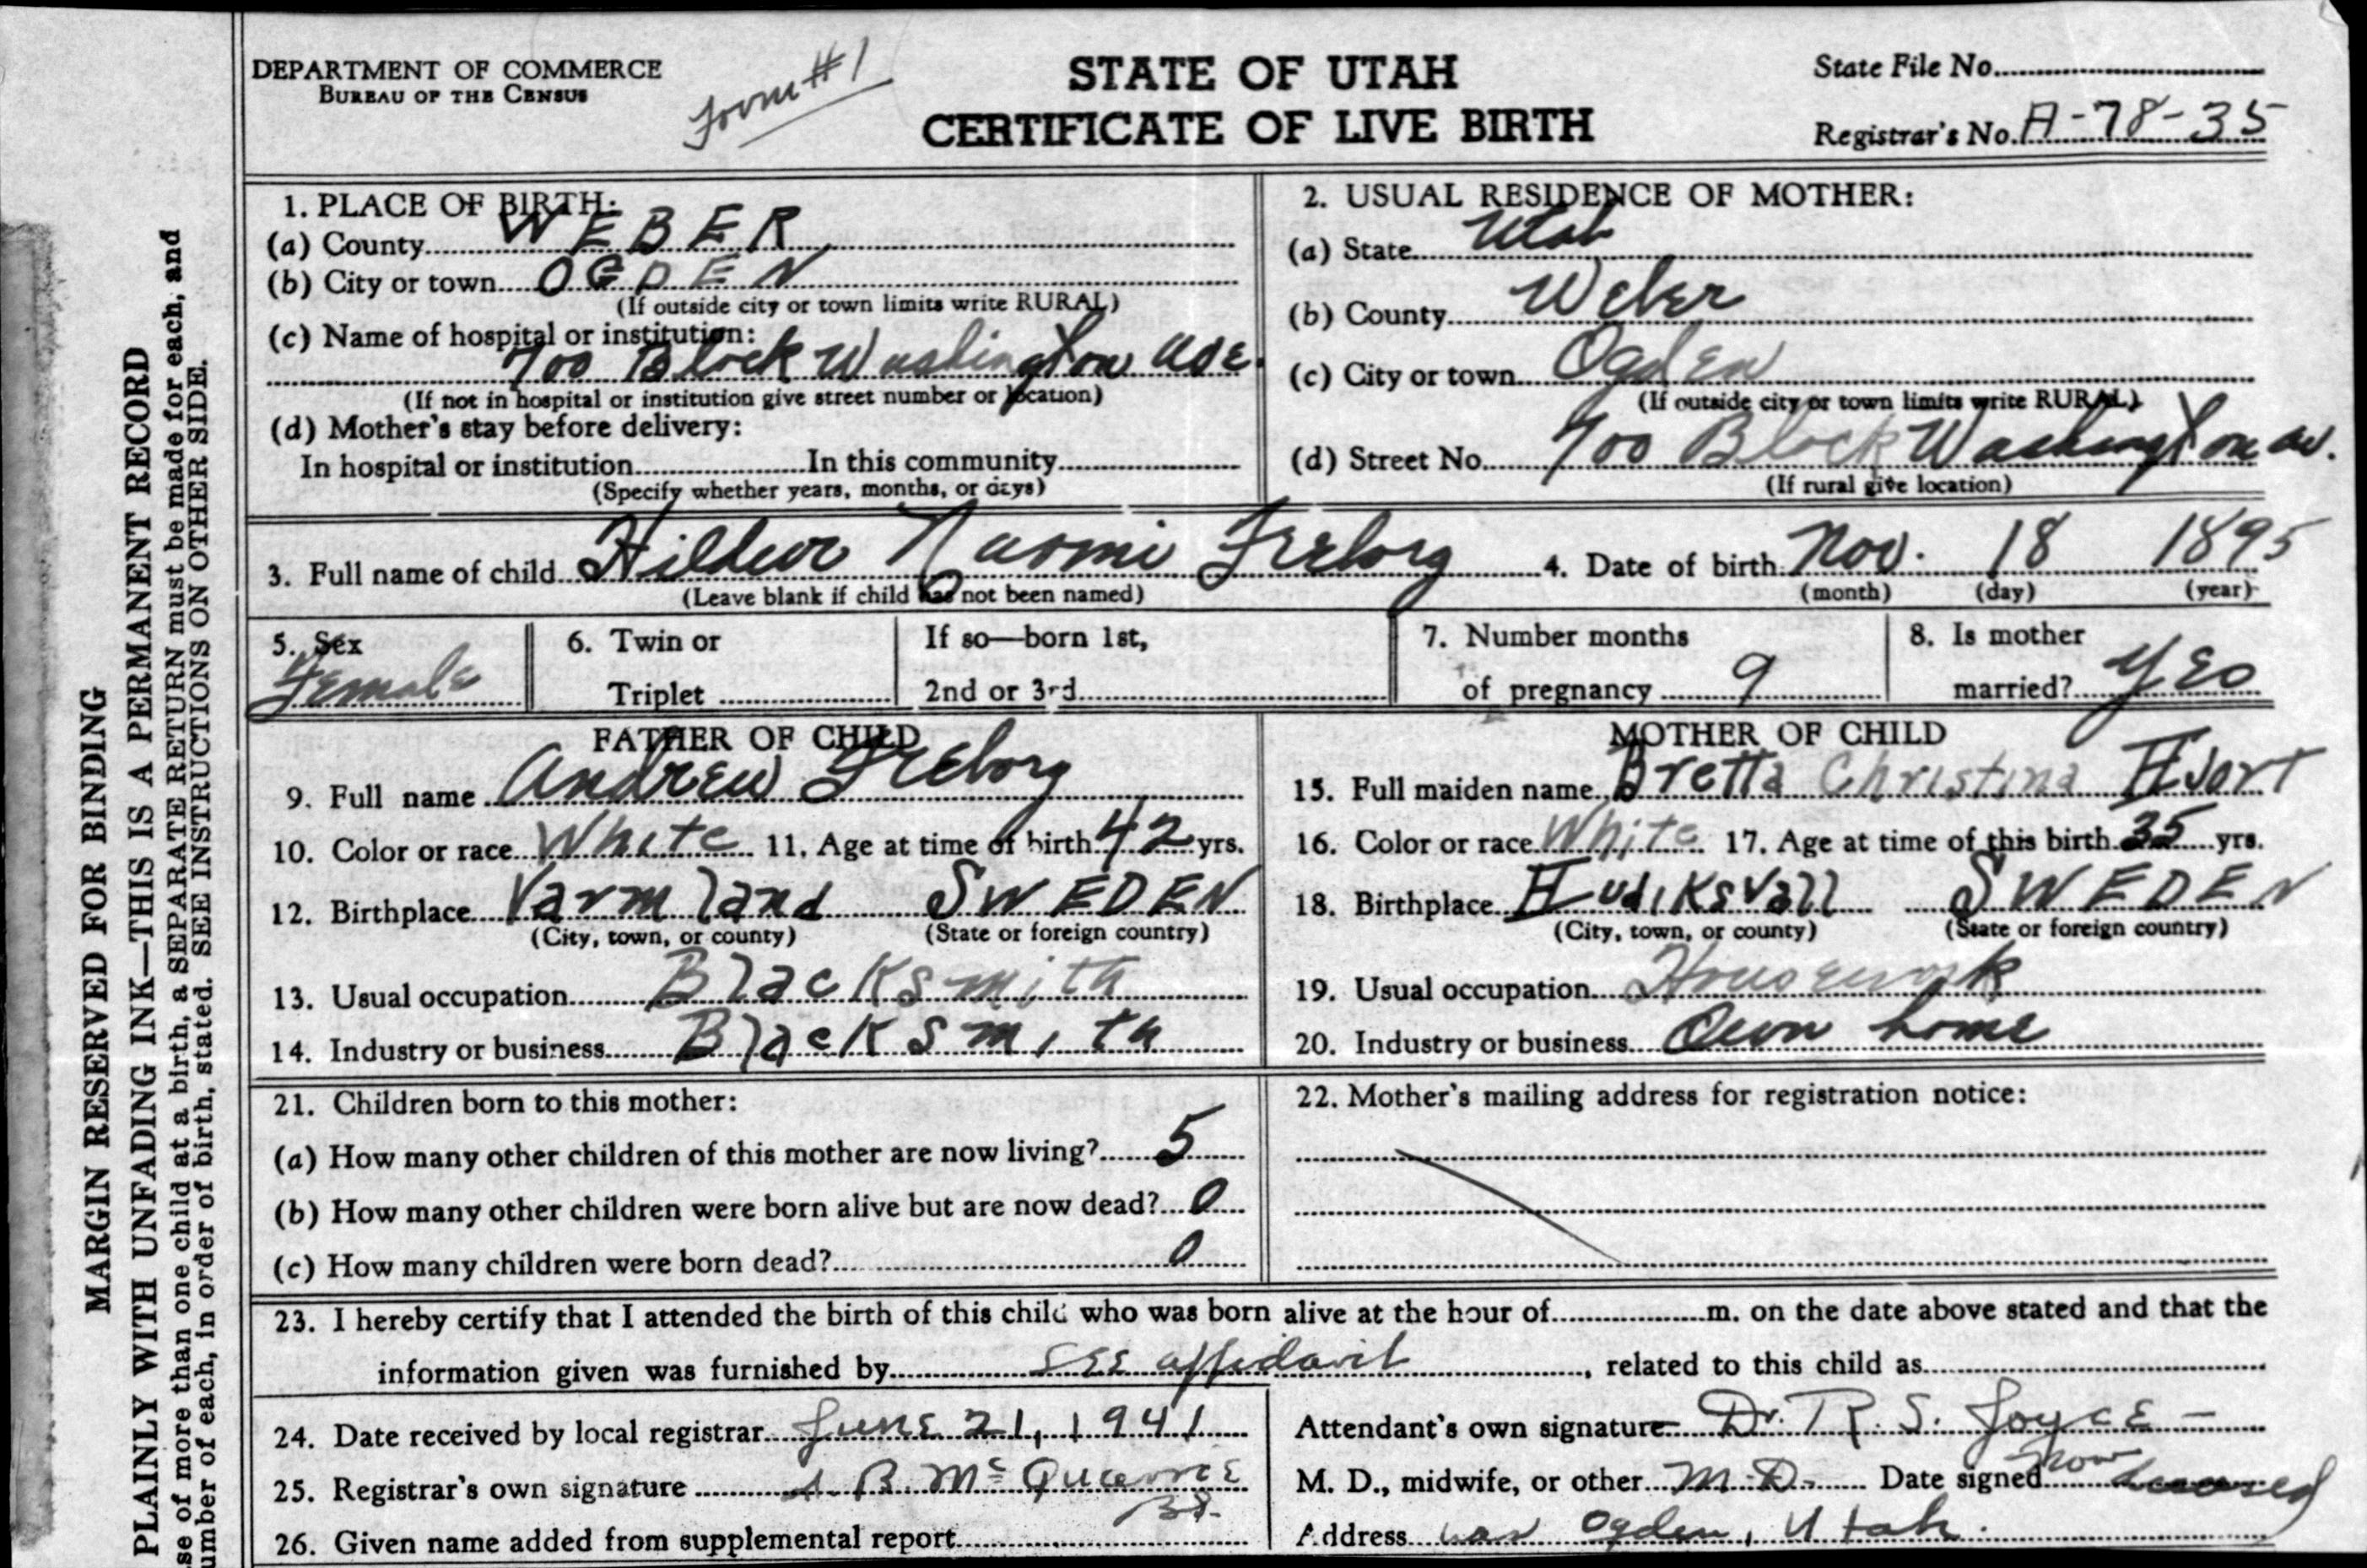 DEPARTMENT OF COMMERCE
BUREAU OF THE CENSUS
Form #1
STATE OF UTAH
CERTIFICATE OF LIVE BIRTH
State File No.
Registrar's No. A-78-35
MARGIN RESERVED FOR BINDING
PLAINLY WITH UNFADING INK—THIS IS A PERMANENT RECORD
se of more than one child at a birth, a SEPARATE RETURN must be made for each, and
umber of each, in order of birth, stated. SEE INSTRUCTIONS ON OTHER SIDE.
1. PLACE OF BIRTH:
(a) County WEBER
(b) City or town OGDEN
(If outside city or town limits write RURAL)
(c) Name of hospital or institution:
700 Block Washington Ave.
(If not in hospital or institution give street number or location)
(d) Mother's stay before delivery:
In hospital or institution In this community
(Specify whether years, months, or days)
2. USUAL RESIDENCE OF MOTHER:
(a) State Utah
(b) County Weber
(c) City or town Ogden
(If outside city or town limits write RURAL)
(d) Street No. 700 Block Washington av.
(If rural give location)
3. Full name of child Hildur Naomi Freborg 4. Date of birth Nov. 18 1895
(Leave blank if child has not been named) (month) (day) (year)
5. Sex
Female
6. Twin or
Triplet
If so—born 1st,
2nd or 3rd
7. Number months
of pregnancy 9
8. Is mother
married? Yes
FATHER OF CHILD
9. Full name Andrew Freborg
10. Color or race White 11. Age at time of birth 42 yrs.
12. Birthplace Varmland SWEDEN
(City, town, or county) (State or foreign country)
13. Usual occupation Blacksmith
14. Industry or business Blacksmith
MOTHER OF CHILD
15. Full maiden name Bretta Christina Hjort
16. Color or race White 17. Age at time of this birth 35 yrs.
18. Birthplace Hudiksvall SWEDEN
(City, town, or county) (State or foreign country)
19. Usual occupation Housework
20. Industry or business Own home
21. Children born to this mother:
(a) How many other children of this mother are now living? 5
(b) How many other children were born alive but are now dead? 0
(c) How many children were born dead? 0
22. Mother's mailing address for registration notice:
23. I hereby certify that I attended the birth of this child who was born alive at the hour of m. on the date above stated and that the
information given was furnished by see affidavit, related to this child as
24. Date received by local registrar June 21, 1941
25. Registrar's own signature
26. Given name added from supplemental report
Attendant's own signature Dr. R. S. Joyce -
M. D., midwife, or other M.D. Date signed now deceased
Address was Ogden, Utah.